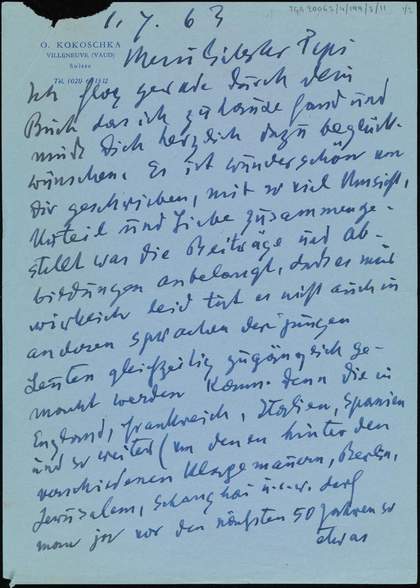 1. 7. 63
O. KOKOSCHKA
VILLENEUVE (VAUD)
Suisse
Mein liebster Pepi
Ich flog gerade durch dein
Buch das ich zuhause fand und
muß Dich herzlich dazu beglück-
wünschen. Es ist wunderschön von
Dir geschrieben, mit so viel Umsicht,
Urteil und Liebe zusammenge-
stellt was die Beiträge und Ab-
bildungen anbelangt, daß es mir
wirklich leid tut es nicht auch in
anderen Sprachen den jungen
Leuten gleichzeitig zugänglich ge-
macht werden kann. Denn die in
England, Frankreich, Italien, Spanien
und so weiter (von denen hinter den
verschiedenen Klagemauern, Berlin,
Jerusalem, Schanghai u.s.w. darf
man ja vor den nächsten 50 Jahren so
etwas